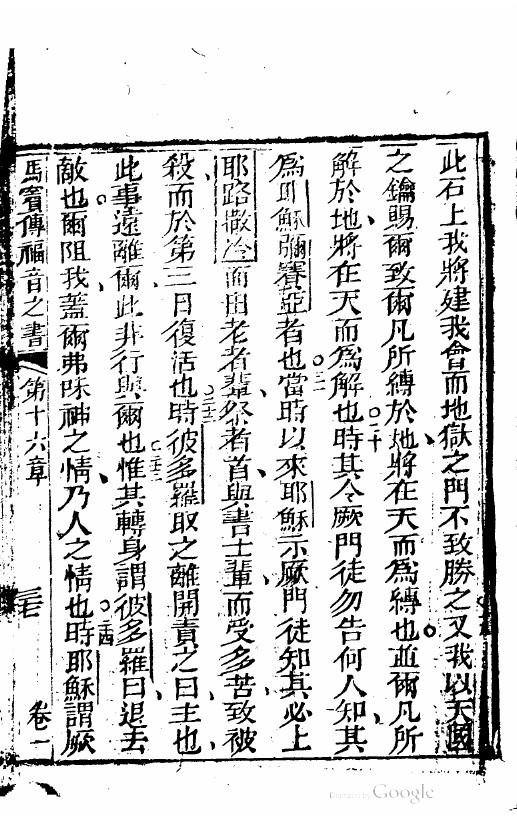 此石上我將建我會而地獄之門不致勝之又我以天國
之鑰賜爾致爾凡所縛於地將在天而為縛也並爾凡所
解於地將在天而為解也二十時其令厥門徒勿告何人知其
為耶穌彌賽亞者也二一當時以來耶穌示厥門徒知其必上
耶路撒冷而由老者輩祭者首與書士輩而受多苦致被
殺而於第三日復活也二二時彼多羅取之離開責之曰主也
此事遠離爾此非行與爾也二三惟其轉身謂彼多羅曰退去
敵也爾阻我蓋爾弗眎神之情乃人之情也二四時耶穌謂厥
馬竇傳福音之書 第十六章 三七 卷一
Digitized by Google